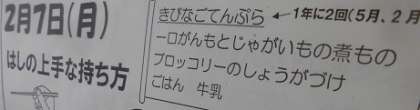 2月7日(月)
はしの上手な持ち方
きびなごてんぷら ←1年に2回(5月、2月
一口がんもとじゃがいもの煮もの
ブロッコリーのしょうがづけ
ごはん 牛乳